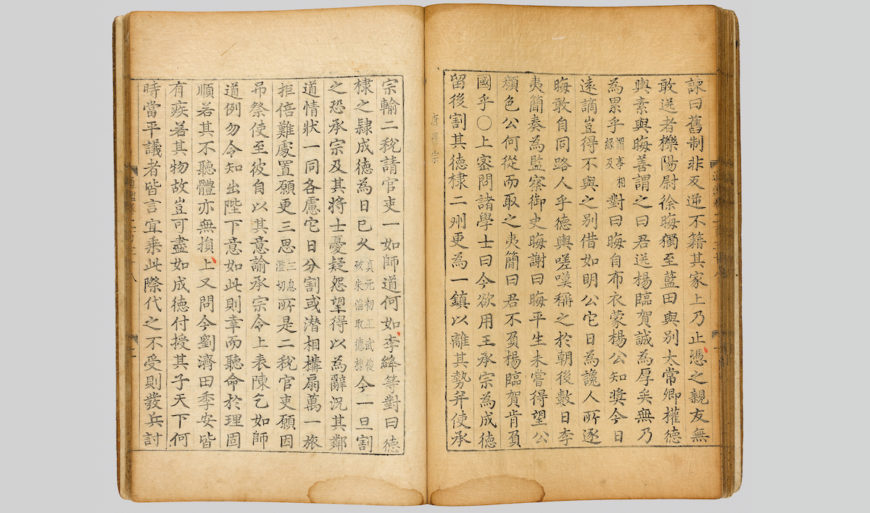 諫曰舊制非反逆不籍其家上乃止憑之親友無
敢送者櫟陽尉徐晦獨至藍田與別太常卿權德
輿素與晦善謂之曰君送楊臨賀誠為厚矣無乃
為累乎謂事相經及對曰晦自布衣蒙楊公知獎今日
遠謫豈得不與之別借如明公它日為讒人所逐
晦敢自同路人乎德輿嗟嘆稱之於朝後數日李
夷簡奏為監察御史晦謝曰晦平生未嘗得望公
顏色公何從而取之夷簡曰君不負楊臨賀肯負
國乎○上密問諸學士曰今欲用王承宗為成德
留後割其德棣二州更為一鎮以離其勢并使承
唐憲宗
宗輸二稅請官吏一如師道何如李絳等對曰德
棣之隸成德為日已久貞元初王武俊破朱滔取德棣今一旦割
之恐承宗及其將士憂疑怨望得以為辭況其鄰
道情狀一同各慮它日分割或潛相構扇萬一旅
拒倍難處置願更三思三息濫切所是二稅官吏願因
吊祭使至彼自以其意諭承宗令上表陳乞如師
道例勿令知出陛下意如此則幸而聽命於理固
順若其不聽體亦無損上又問今劉濟田季安皆
有疾若其物故豈可盡如成德付授其子天下何
時當平議者皆言宜乘此際代之不受則發兵討